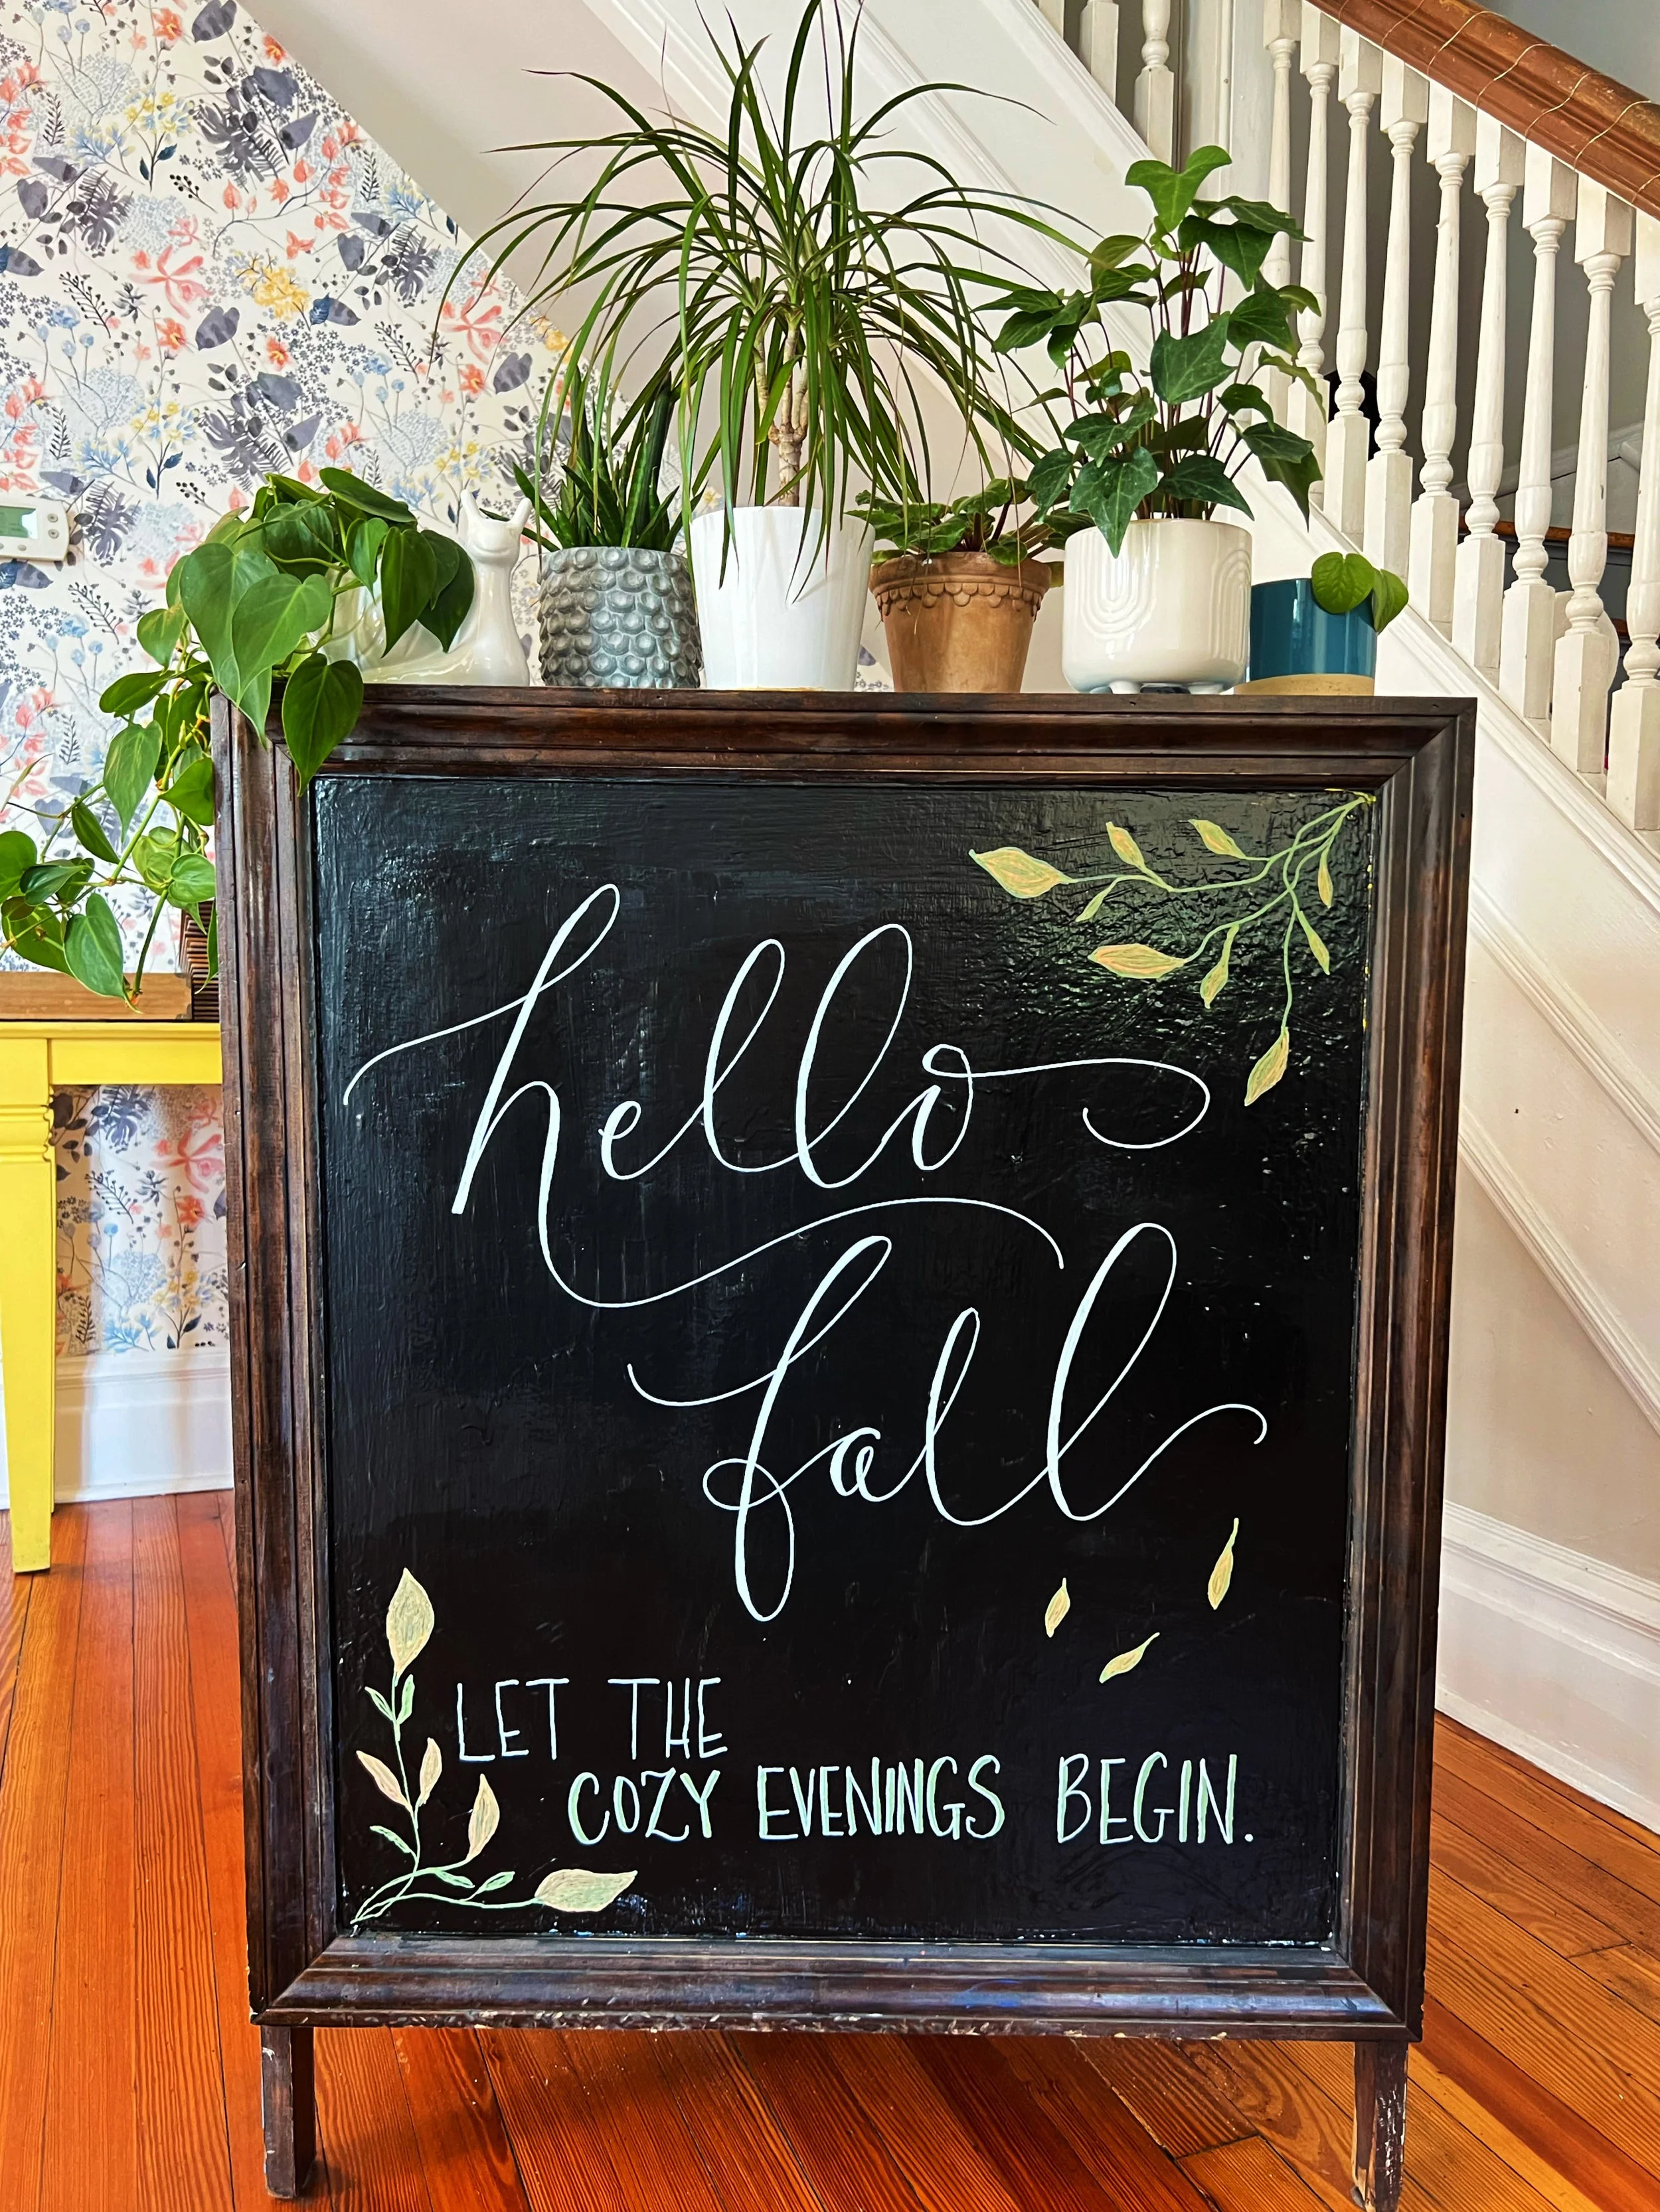 hello
fall
LET THE
COZY EVENINGS BEGIN.